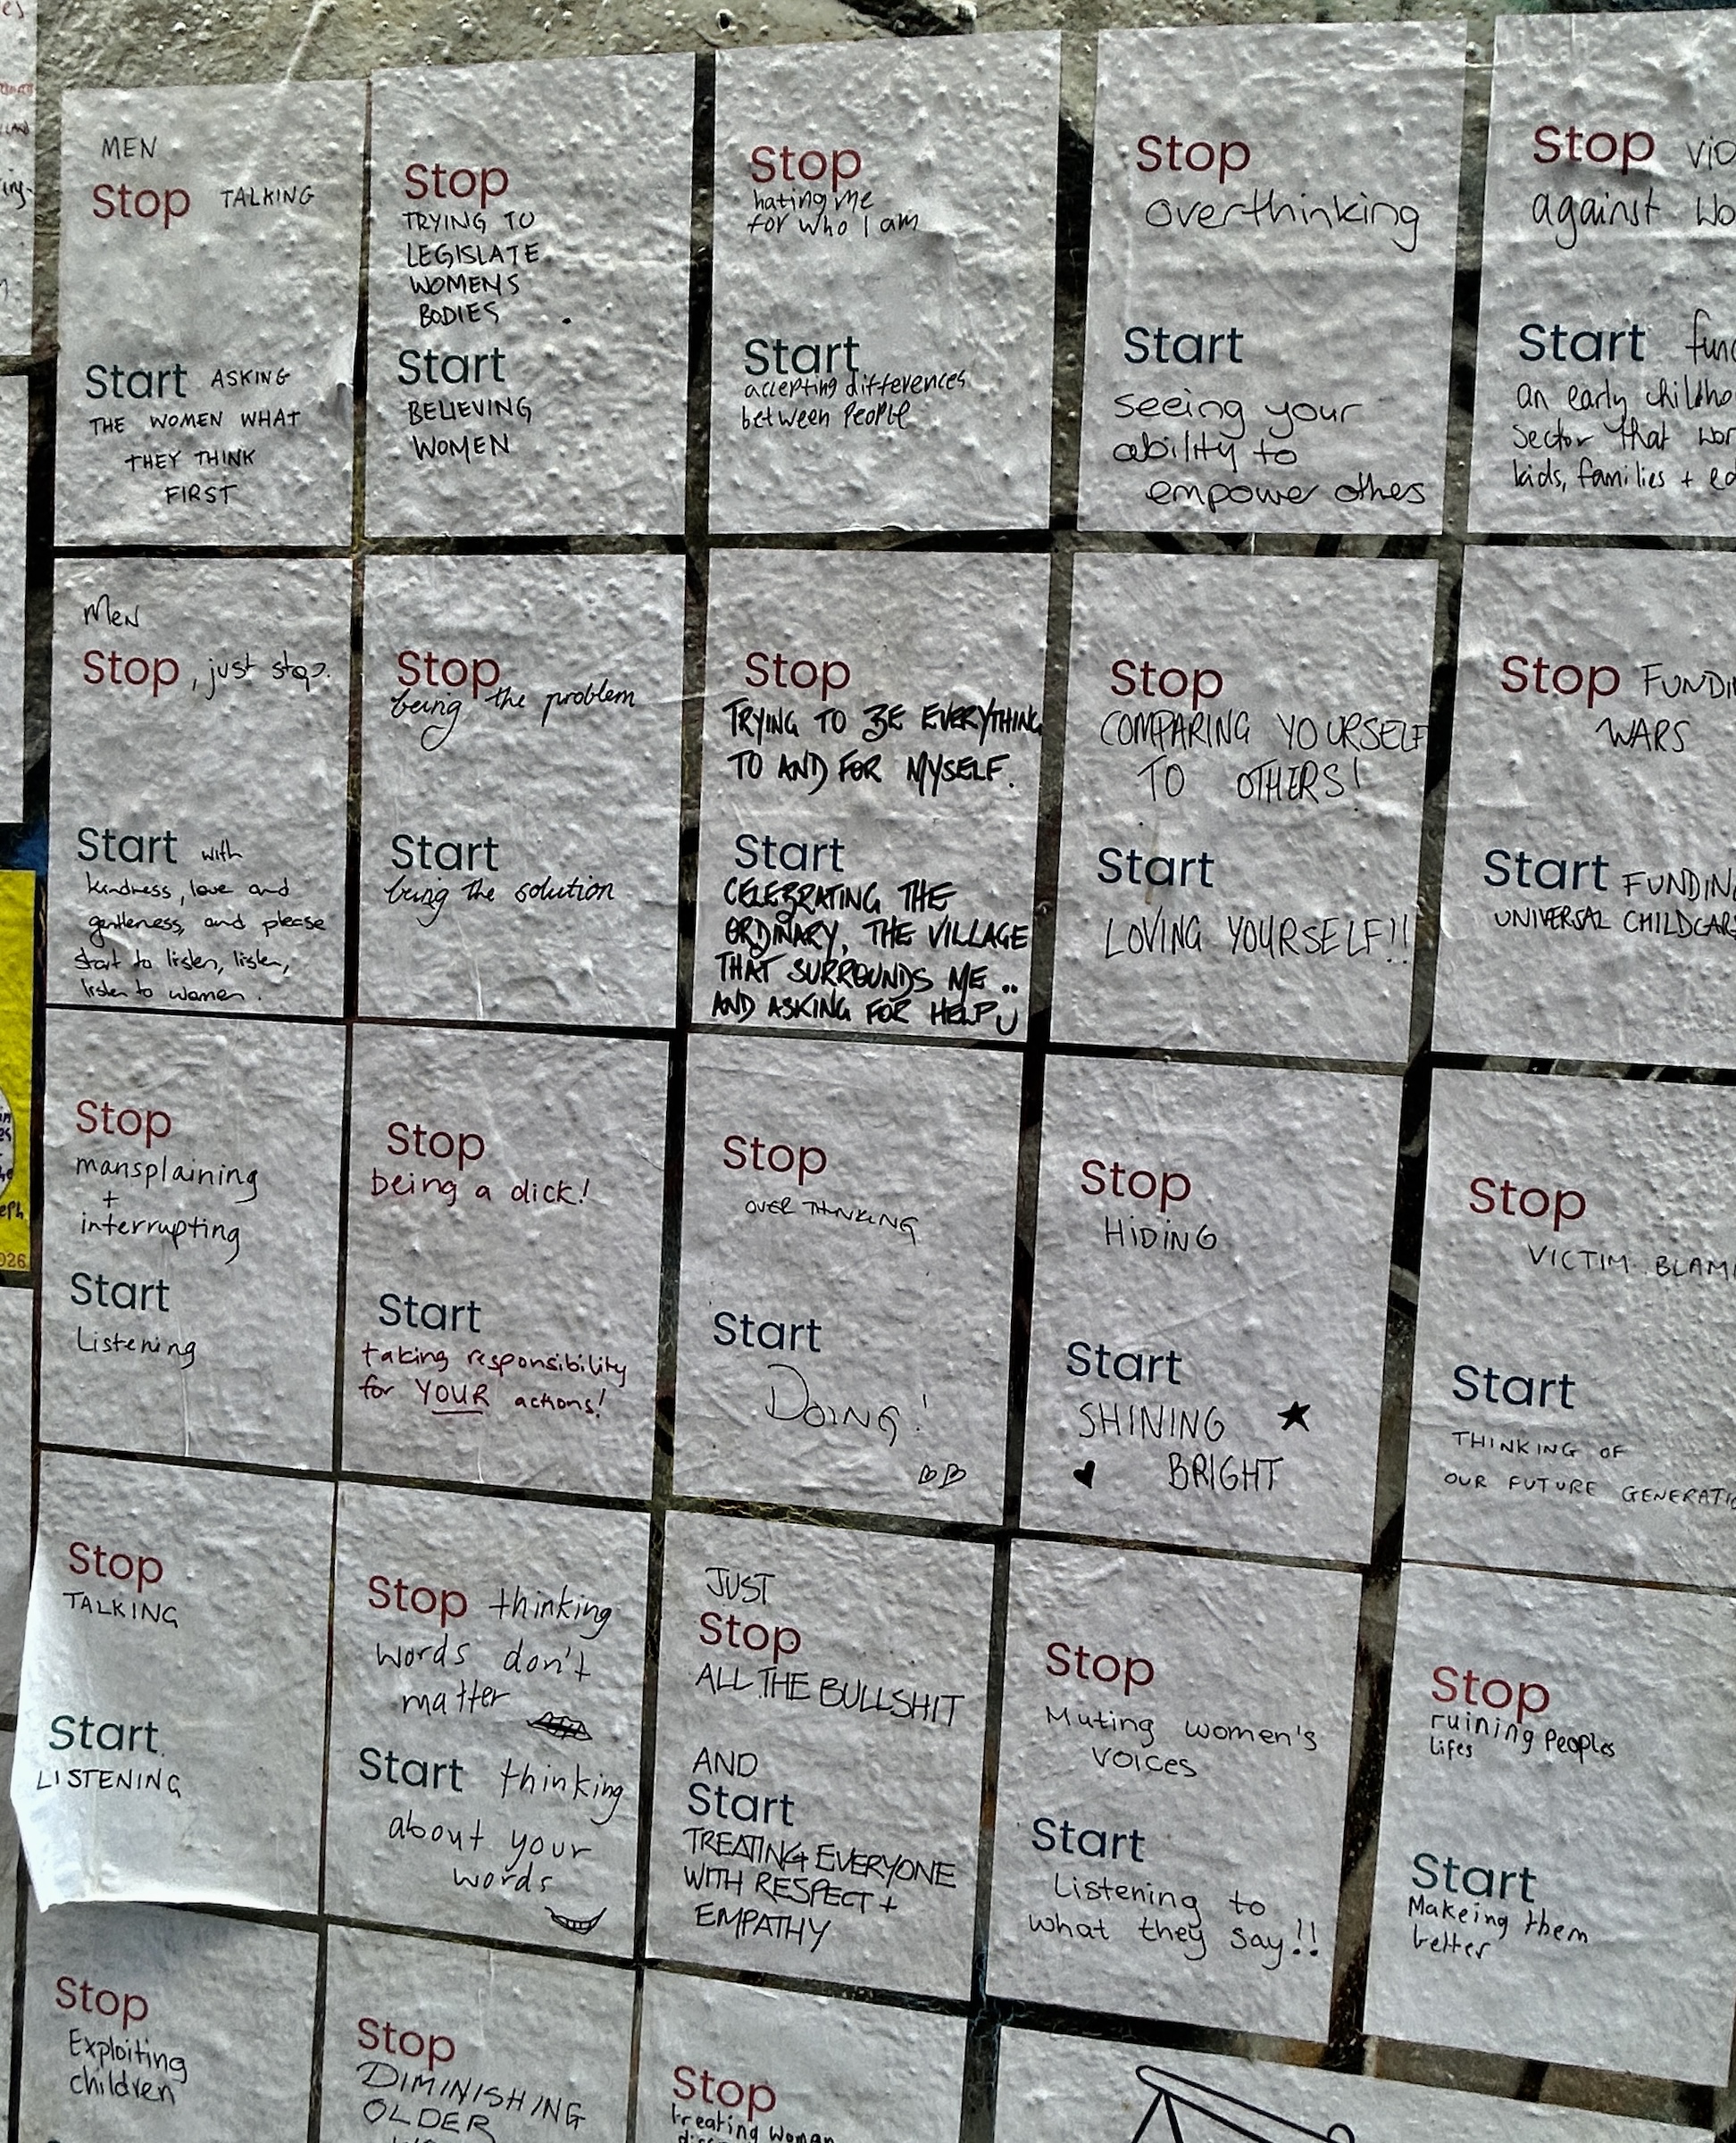 MEN
Stop TALKING
Start ASKING
THE WOMEN WHAT
THEY THINK
FIRST
Stop
TRYING TO
LEGISLATE
WOMENS
BODIES
Start
BELIEVING
WOMEN
Stop
hating me
for who I am
Start
accepting differences
between People
Stop
overthinking
Start
seeing your
ability to
empower othes
Stop
against
Start
an early
sector that
kids, families +
Men
Stop, just stop.
Start with
kindness, love and
gentleness, and please
start to listen, listen,
listen to women.
Stop
being the problem
Start
being the solution
Stop
TRYING TO BE EVERYTHING
TO AND FOR MYSELF.
Start
CELEBRATING THE
ORDINARY, THE VILLAGE
THAT SURROUNDS ME ..
AND ASKING FOR HELP
Stop
COMPARING YOURSELF
TO OTHERS!
Start
LOVING YOURSELF!!
Stop FUNDI
WARS
Start FUNDIN
UNIVERSAL CHILDCAR
Stop
mansplaining
+
interrupting
Start
Listening
Stop
being a dick!
Start
taking responsibility
for YOUR actions!
Stop
OVER THINKING
Start
DOING!
Stop
HIDING
Start
SHINING
BRIGHT
Stop
VICTIM BLAM
Start
THINKING OF
OUR FUTURE GENERATI
Stop
TALKING
Start
LISTENING
Stop thinking
words don't
matter
Start thinking
about your
words
JUST
Stop
ALL THE BULLSHIT
AND
Start
TREATING EVERYONE
WITH RESPECT +
EMPATHY
Stop
Muting women's
voices
Start
Listening to
what they say!!
Stop
ruining Peoples
lifes
Start
Makeing them
better
Stop
Exploiting
children
Stop
DIMINISHING
OLDER
Stop
treating woman
026